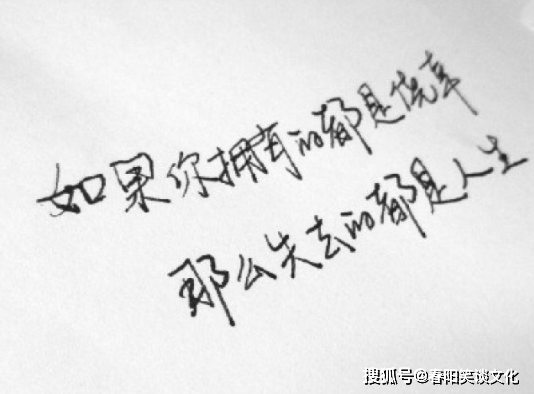 如果你拥有的都是侥幸
那么失去的都是人生
搜狐号@春阳笑谈文化